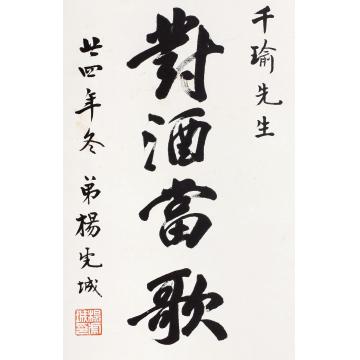 千瑜先生
對酒當歌
廿四年冬 弟楊虎城